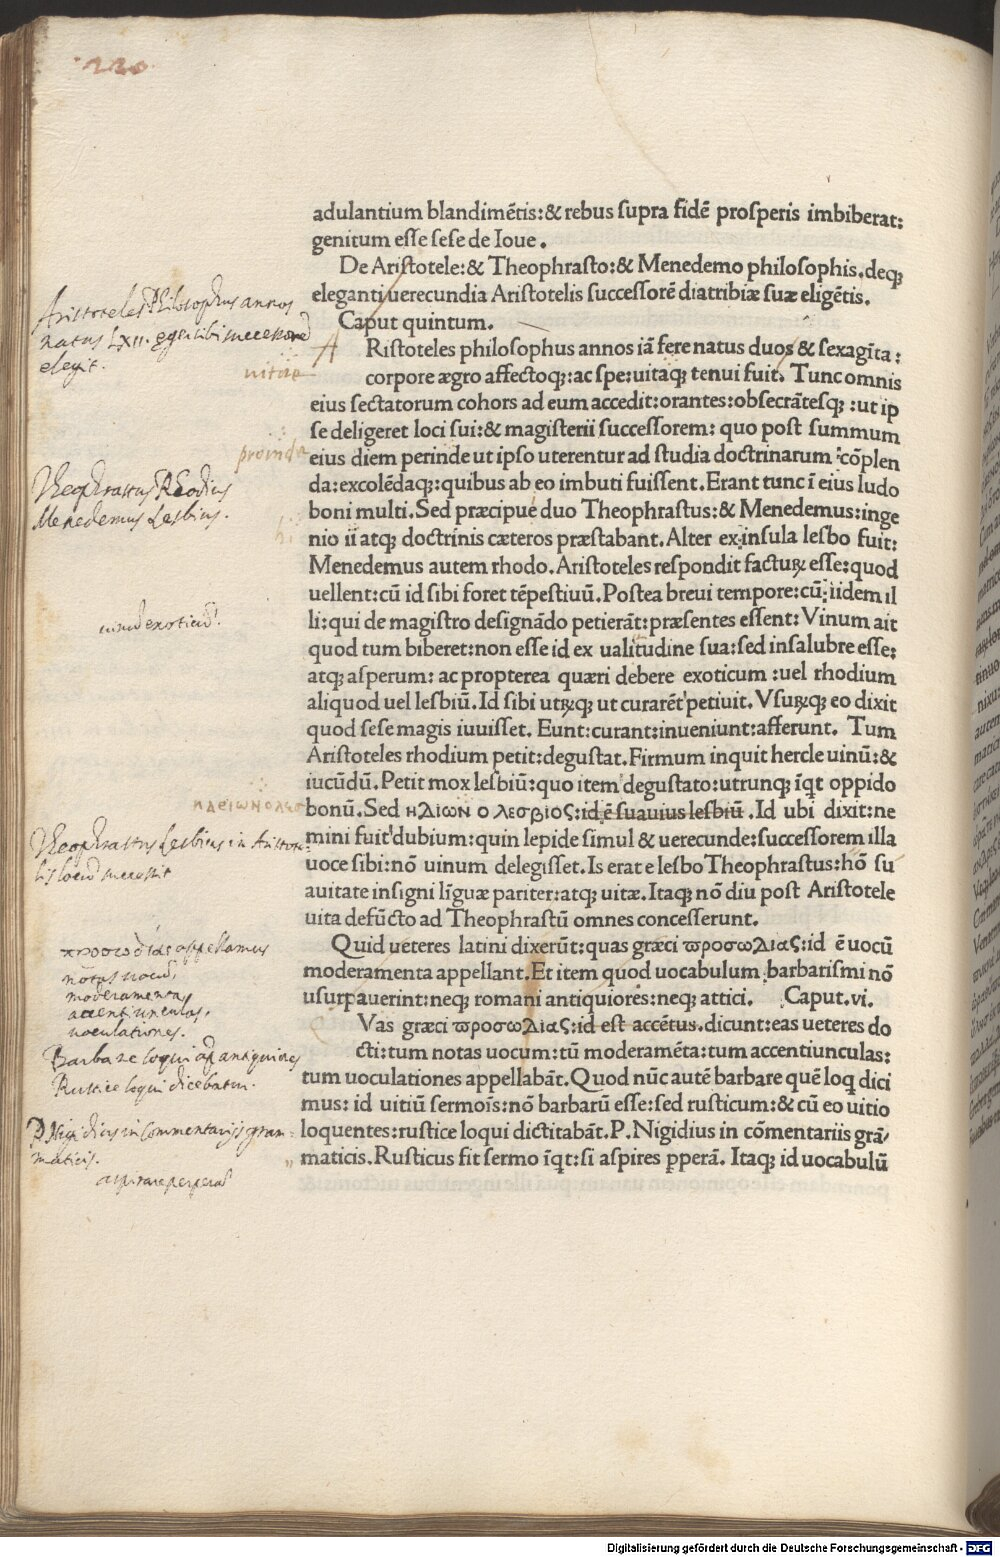 220
adulantium blandimẽtis:& rebus supra fidẽ prosperis imbiberat:
genitum esse sese de Ioue.
De Aristotele:& Theophrasto:& Menedemo philosophis.deqꝫ
eleganti uerecundia Aristotelis successorẽ diatribiæ suæ eligẽtis.
Caput quintum.
A
Ristoteles philosophus annos iã fere natus duos & sexagĩta:
corpore ægro affectoqꝫ:ac spe:uitaqꝫ tenui fuit. Tunc omnis
eius sectatorum cohors ad eum accedit:orantes:obsecrãtesqꝫ:ut ip
se deligeret loci sui:& magisterii successorem: quo post summum
eius diem perinde ut ipso uterentur ad studia doctrinarum cõplen
da:excolẽdaqꝫ:quibus ab eo imbuti fuissent.Erant tunc ĩ eius ludo
boni multi.Sed præcipue duo Theophrastus:& Menedemus:inge
nio ii atqꝫ doctrinis cæteros præstabant.Alter ex insula lesbo fuit:
Menedemus autem rhodo.Aristoteles respondit facturꝝ esse:quod
uellent:cũ id sibi foret tẽpestiuũ.Postea breui tempore:cũ iidem il
li:qui de magistro designãdo petierãt:præsentes essent: Vinum ait
quod tum biberet:non esse id ex ualitudine sua:sed insalubre esse:
atqꝫ asperum: ac propterea quæri debere exoticum :uel rhodium
aliquod uel lesbiũ.Id sibi utrꝝqꝫ ut curarẽt petiuit. Vsurꝝqꝫ eo dixit
quod sese magis iuuisset. Eunt:curant:inueniunt:afferunt. Tum
Aristoteles rhodium petit:degustat.Firmum inquit hercle uinũ:&
iucũdũ.Petit mox lesbiũ:quo item degustato:utrunqꝫ ĩqt oppido
bonũ.Sed ηΔιων ο λεσβιος:id ẽ suauius lesbiũ .Id ubi dixit:ne
mini fuit dubium:quin lepide simul & uerecunde:successorem illa
uoce sibi:nõ uinum delegisset.Is erat e lesbo Theophrastus:hõ su
auitate insigni lĩguæ pariter:atqꝫ uitæ.Itaqꝫ nõ diu post Aristotele
uita defũcto ad Theophrastũ omnes concesserunt.
Quid ueteres latini dixerũt:quas græci ϖροσωΔιας:id ẽ uocũ
moderamenta appellant.Et item quod uocabulum barbarismi nõ
usurpauerint:neqꝫ romani antiquiores:neqꝫ attici. Caput.vi.
Vas græci ϖροσωΔιας:id est accẽtus.dicunt:eas ueteres do
cti:tum notas uocum:tũ moderamẽta:tum accentiunculas:
tum uoculationes appellabãt.Quod nũc autẽ barbare quẽ loqꝫ dici
mus: id uitiũ sermoĩs:nõ barbarũ esse:sed rusticum:& cũ eo uitio
loquentes:rustice loqui dictitabãt.P.Nigidius in cõmentariis grã/
maticis.Rusticus fit sermo ĩqt:si aspires pperã. Itaqꝫ id uocabulũ
Aristoteles Philosophus annos
natus LXII.
elegit.
uitae
proinde
Theophrastus Rhodius
Menedemus Lesbius.
hi
uinũ exoticũ.
Theophrastus Lesbius in Aristote
lis locũ
προσωδίας appellamus
notas uocũ,
moderamenta,
accentiunculas,
uoculationes.
Barbare loqui
Rustice loqui dicebatur.
P. Nigidius in Commentarijs gram=
maticis.
aspirare perperã
Digitalisierung gefördert durch die Deutsche Forschungsgemeinschaft - DFG